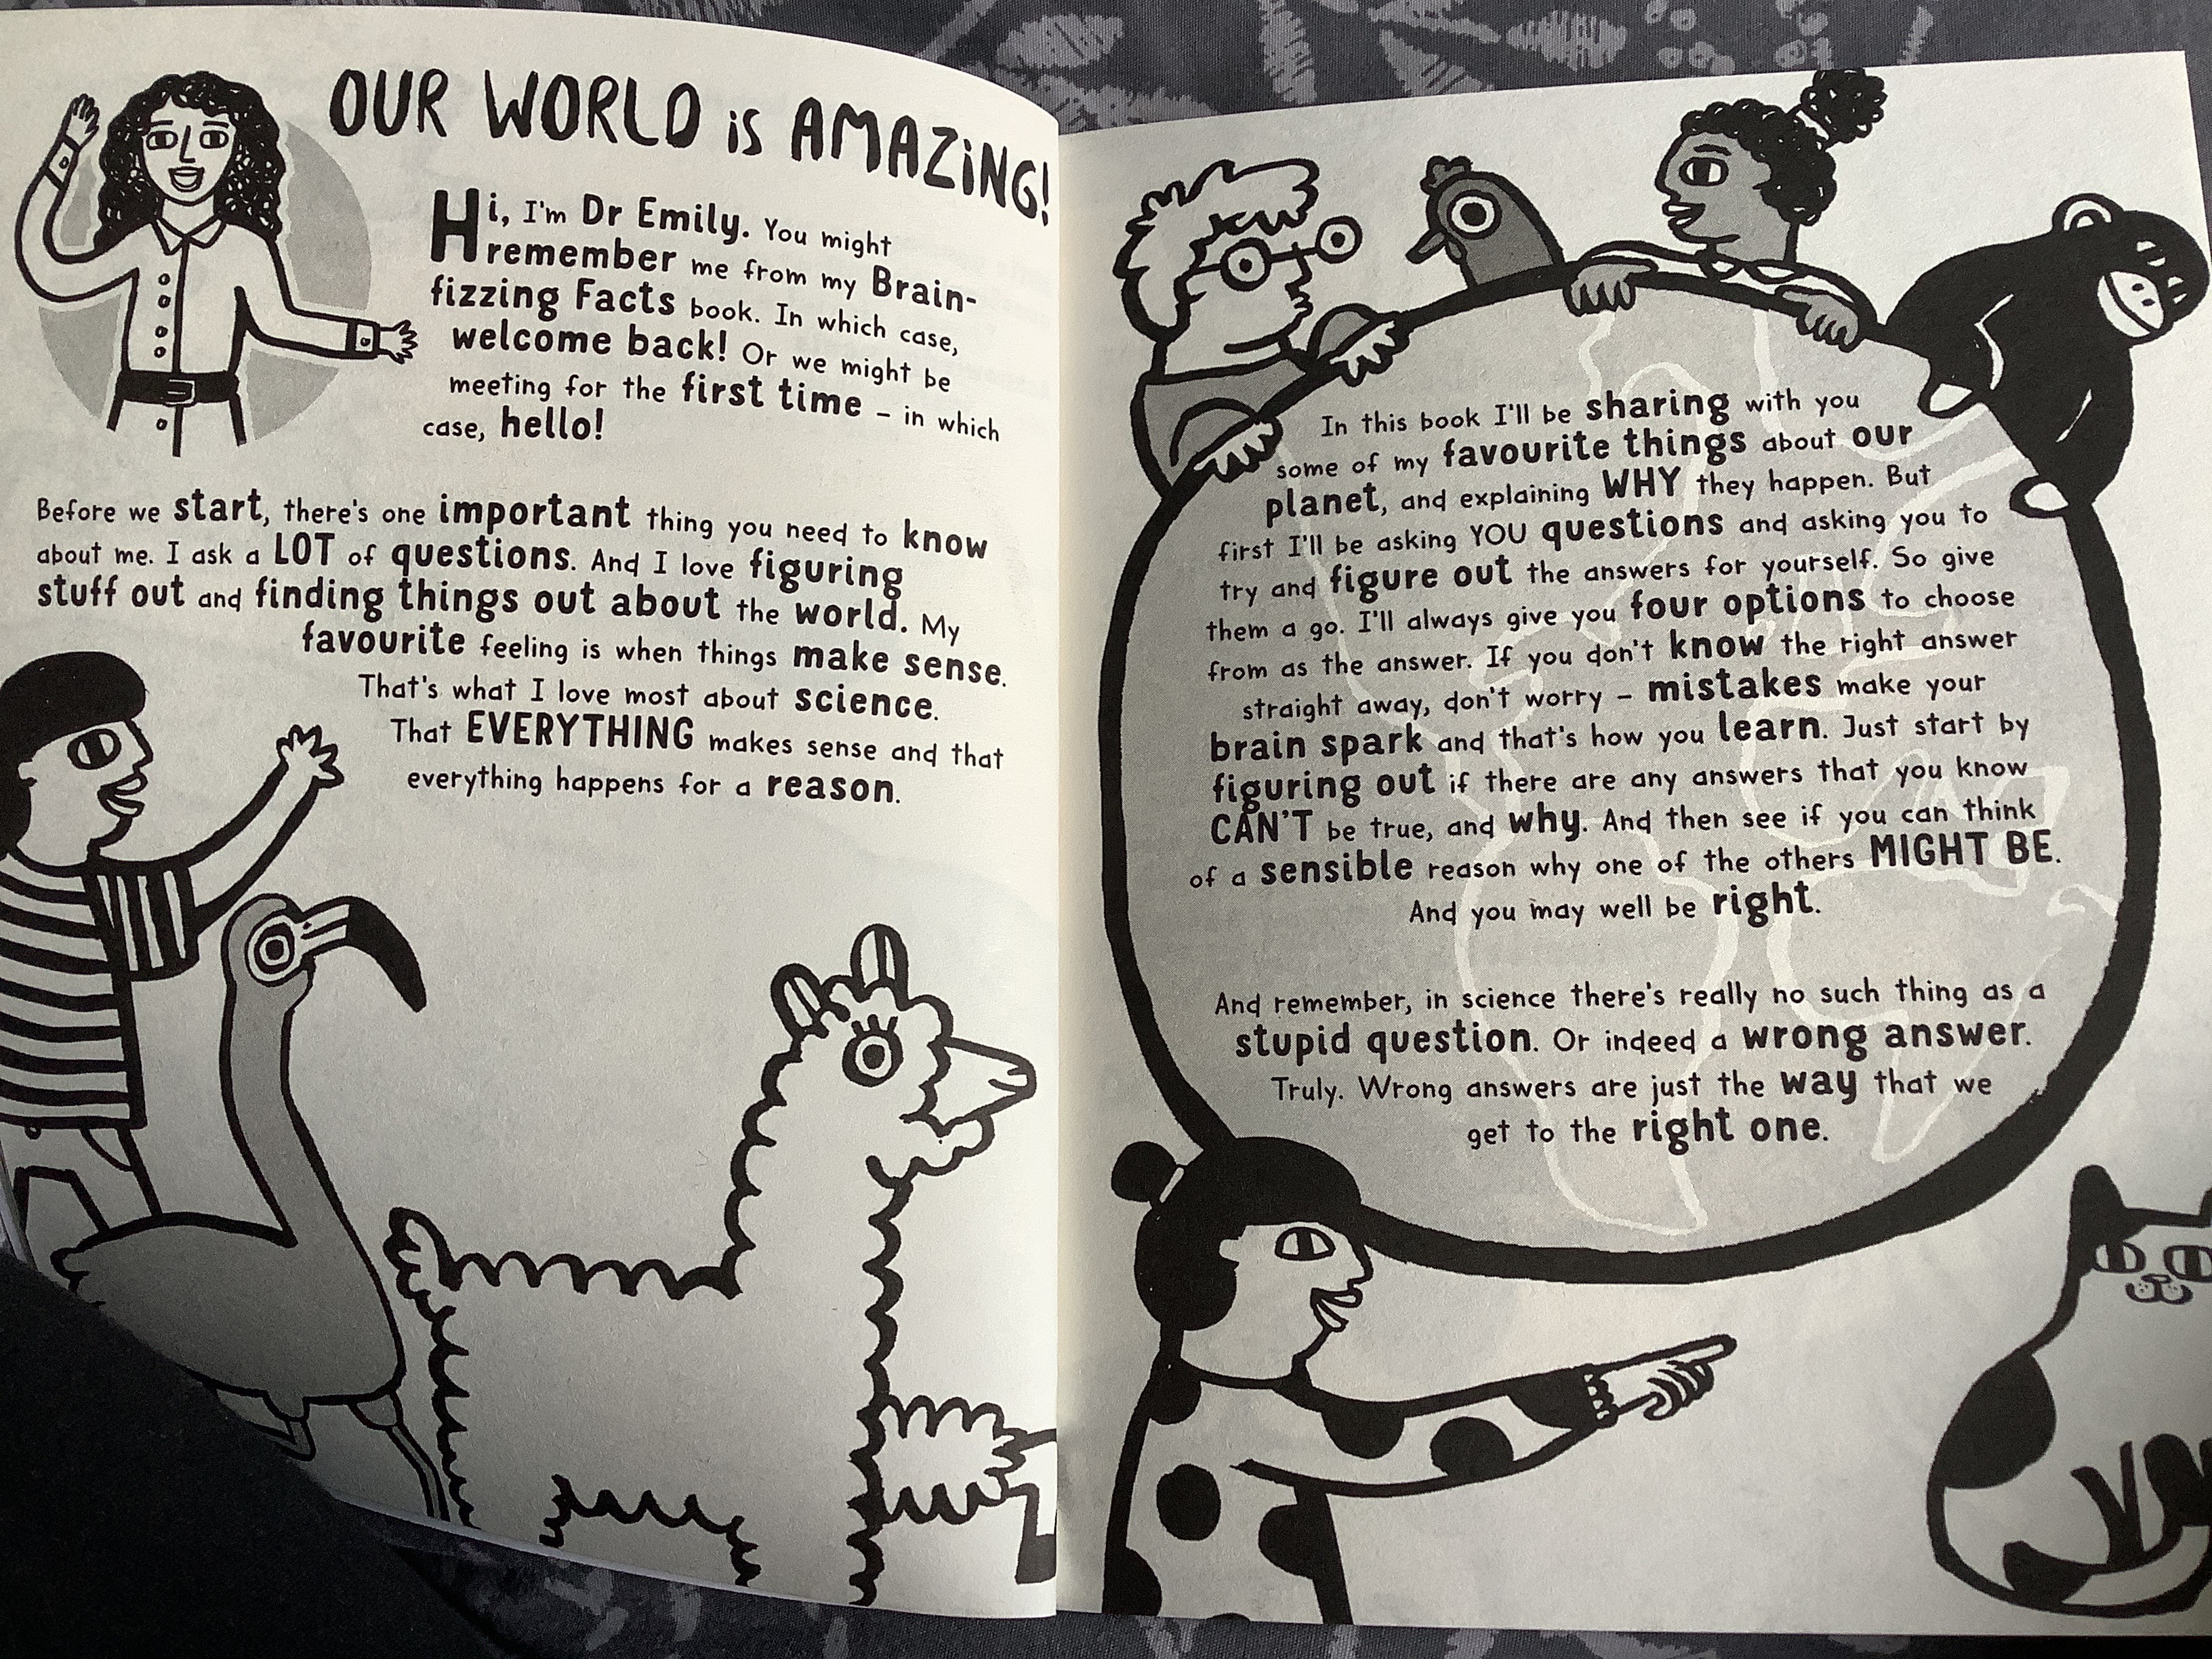 OUR WORLD iS AMAZiNG!
Hi, I'm Dr Emily. You might
remember me from my Brain-
fizzing Facts book. In which case,
welcome back! Or we might be
meeting for the first time – in which
case, hello!
Before we start, there's one important thing you need to know
about me. I ask a LOT of questions. And I love figuring
stuff out and finding things out about the world. My
favourite feeling is when things make sense.
That's what I love most about science.
That EVERYTHING makes sense and that
everything happens for a reason.
In this book I'll be sharing with you
some of my favourite things about our
planet, and explaining WHY they happen. But
first I'll be asking YOU questions and asking you to
try and figure out the answers for yourself. So give
them a go. I'll always give you four options to choose
from as the answer. If you don't know the right answer
straight away, don't worry – mistakes make your
brain spark and that's how you learn. Just start by
figuring out if there are any answers that you know
CAN'T be true, and why. And then see if you can think
of a sensible reason why one of the others MIGHT BE.
And you may well be right.
And remember, in science there's really no such thing as a
stupid question. Or indeed a wrong answer.
Truly. Wrong answers are just the way that we
get to the right one.